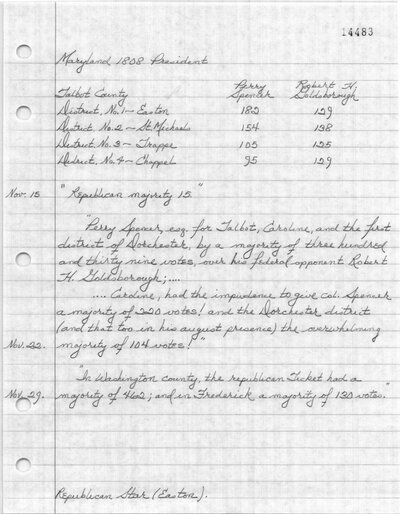 14483
Maryland 1808 President
Talbot County Perry Spencer Robert H. Goldsborough
District, No. 1 — Easton 182 129
District, No. 2 — St. Michaels 154 138
District, No. 3 — Trappe 105 125
District, No. 4 — Chappel 95 129
Nov. 15 "Republican majority 15."
"Perry Spencer, esq. for Talbot, Caroline, and the first
district of Dorchester, by a majority of three hundred
and thirty nine votes, over his federal opponent Robert
H. Goldsborough;....
.... Caroline, had the impudence to give col. Spencer
a majority of 220 votes! and the Dorchester district
(and that too in his august presence) the overwhelming
Nov. 22. majority of 104 votes!"
"In Washington county, the republican Ticket had a
Nov. 29. majority of 462; and in Frederick a majority of 130 votes."
Republican Star (Easton).